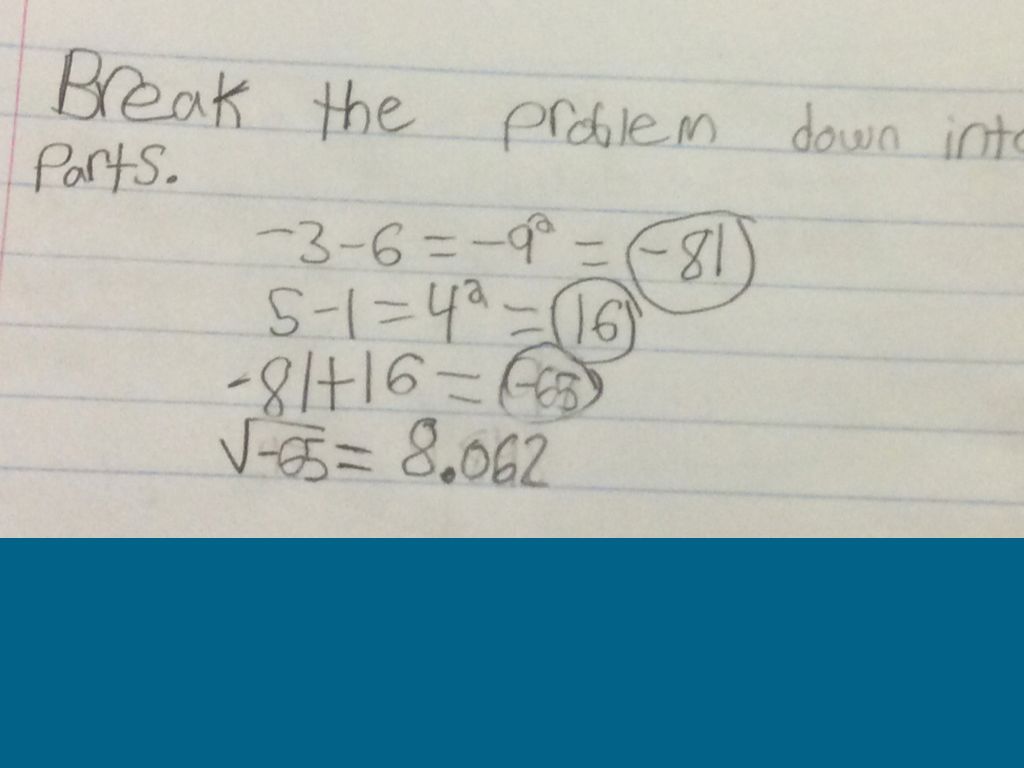 Break the problem down into
parts.
-3-6=-9²=-81
5-1=4²=16
-81+16=-65
√-65=8.062